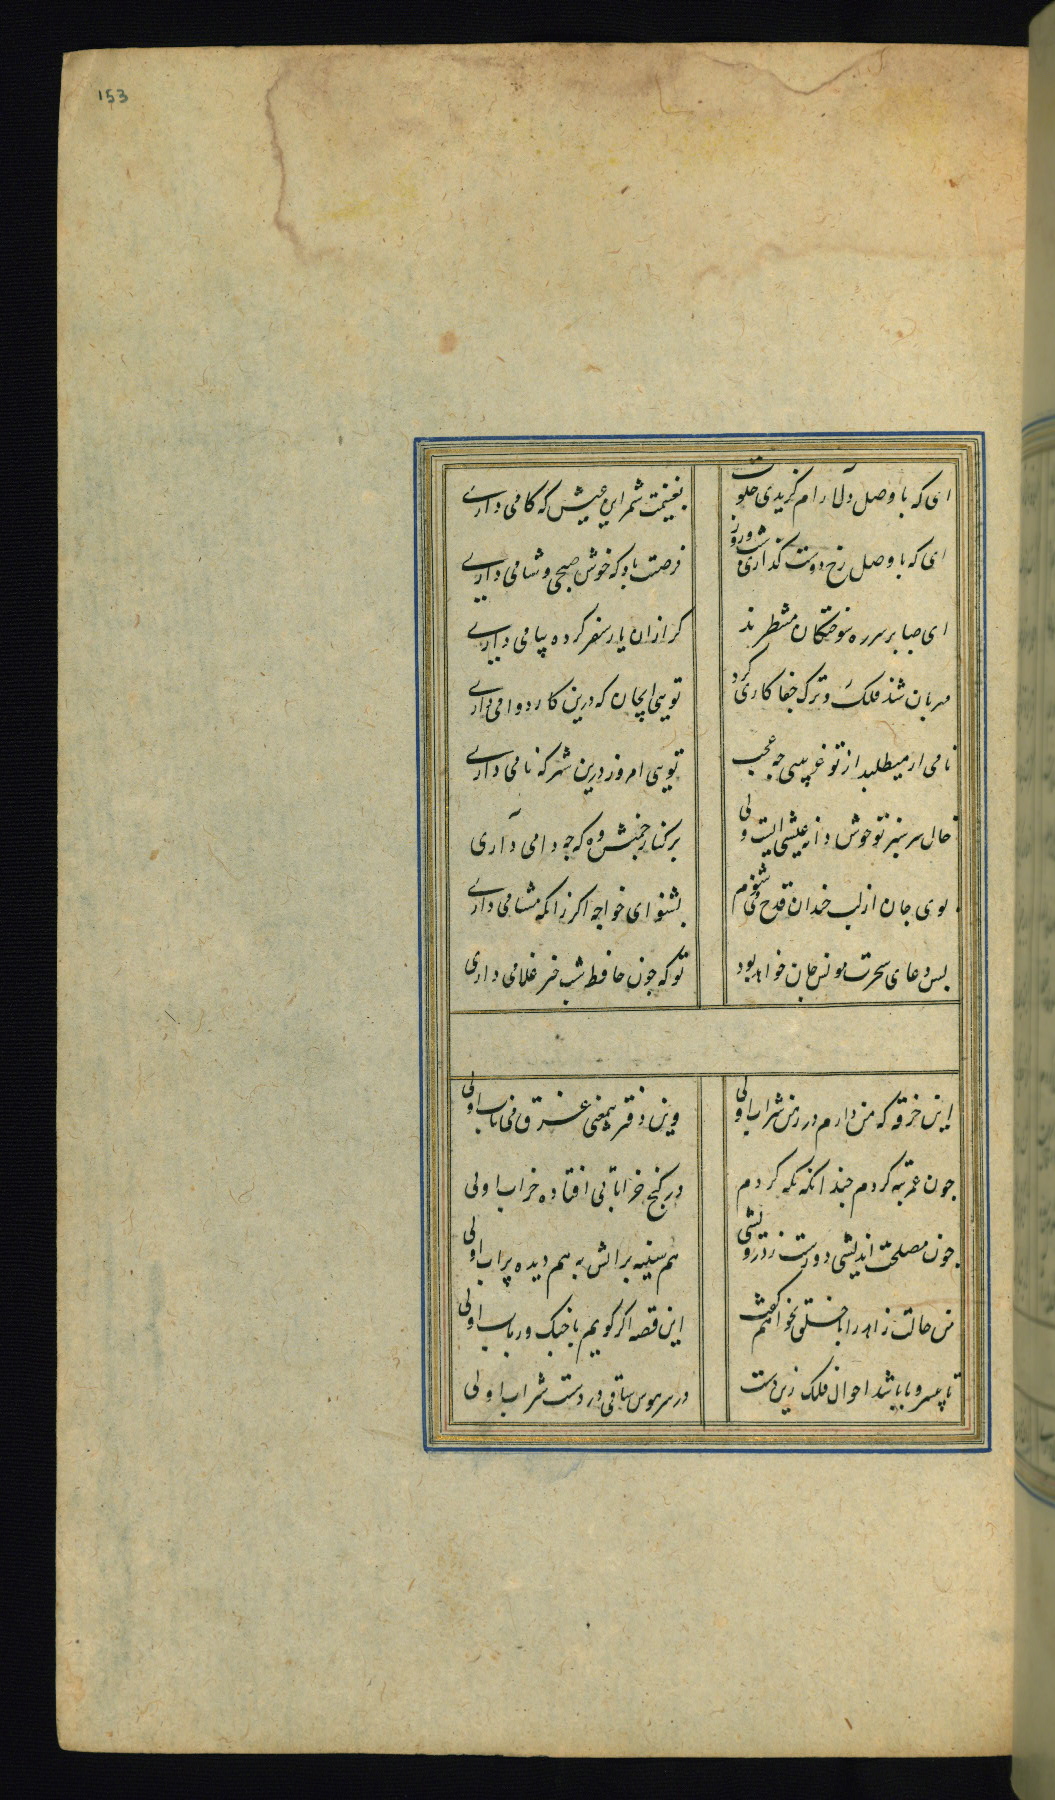 153
ای که با وصل دلارام گزیدی خلوت
بغنیمت شمر این عیش که کامی داری
ای که با وصل رخ دوست گذاری شب و روز
فرصت باد که خوش صبحی و شامی داری
ای صبا بر سر ره سوختکان منتظرند
کر ازان یار سفر کرده پیامی داری
مهربان شد فلک و ترک جفا کاری کرد
تویی ای جان که درین کار دوامی داری
نامی ار میطلبد از تو غریبی چه عجب
تویی امروز درین شهر که نامی داری
خال سرسبز تو خوش دانه عیشی است ولی
بر کنار چمنش وه که چه دامی داری
بوی جان از لب خندان قدح می شنوم
بشنو ای خواجه اکر زانکه مشامی داری
بس دعای سحرت مونس جان خواهد بود
تو که چون حافظ شب خیز غلامی داری
این خرقه که من دارم در رهن شراب اولی
وین دفتر بیمعنی غرق می ناب اولی
چون عمر تبه کردم چندانکه نکه کردم
در کنج خراباتی افتاده خراب اولی
چون مصلحت اندیشی دورست ز درویشی
هم سینه پر اتش به هم دیده پر اب اولی
من حالت زاهد را با خلق نخواهم گفت
این قصه اکر کویم با چنک و رباب اولی
تا بی سر و پا باشد احوال فلک زین دست
در سر هوس ساقی در دست شراب اولی